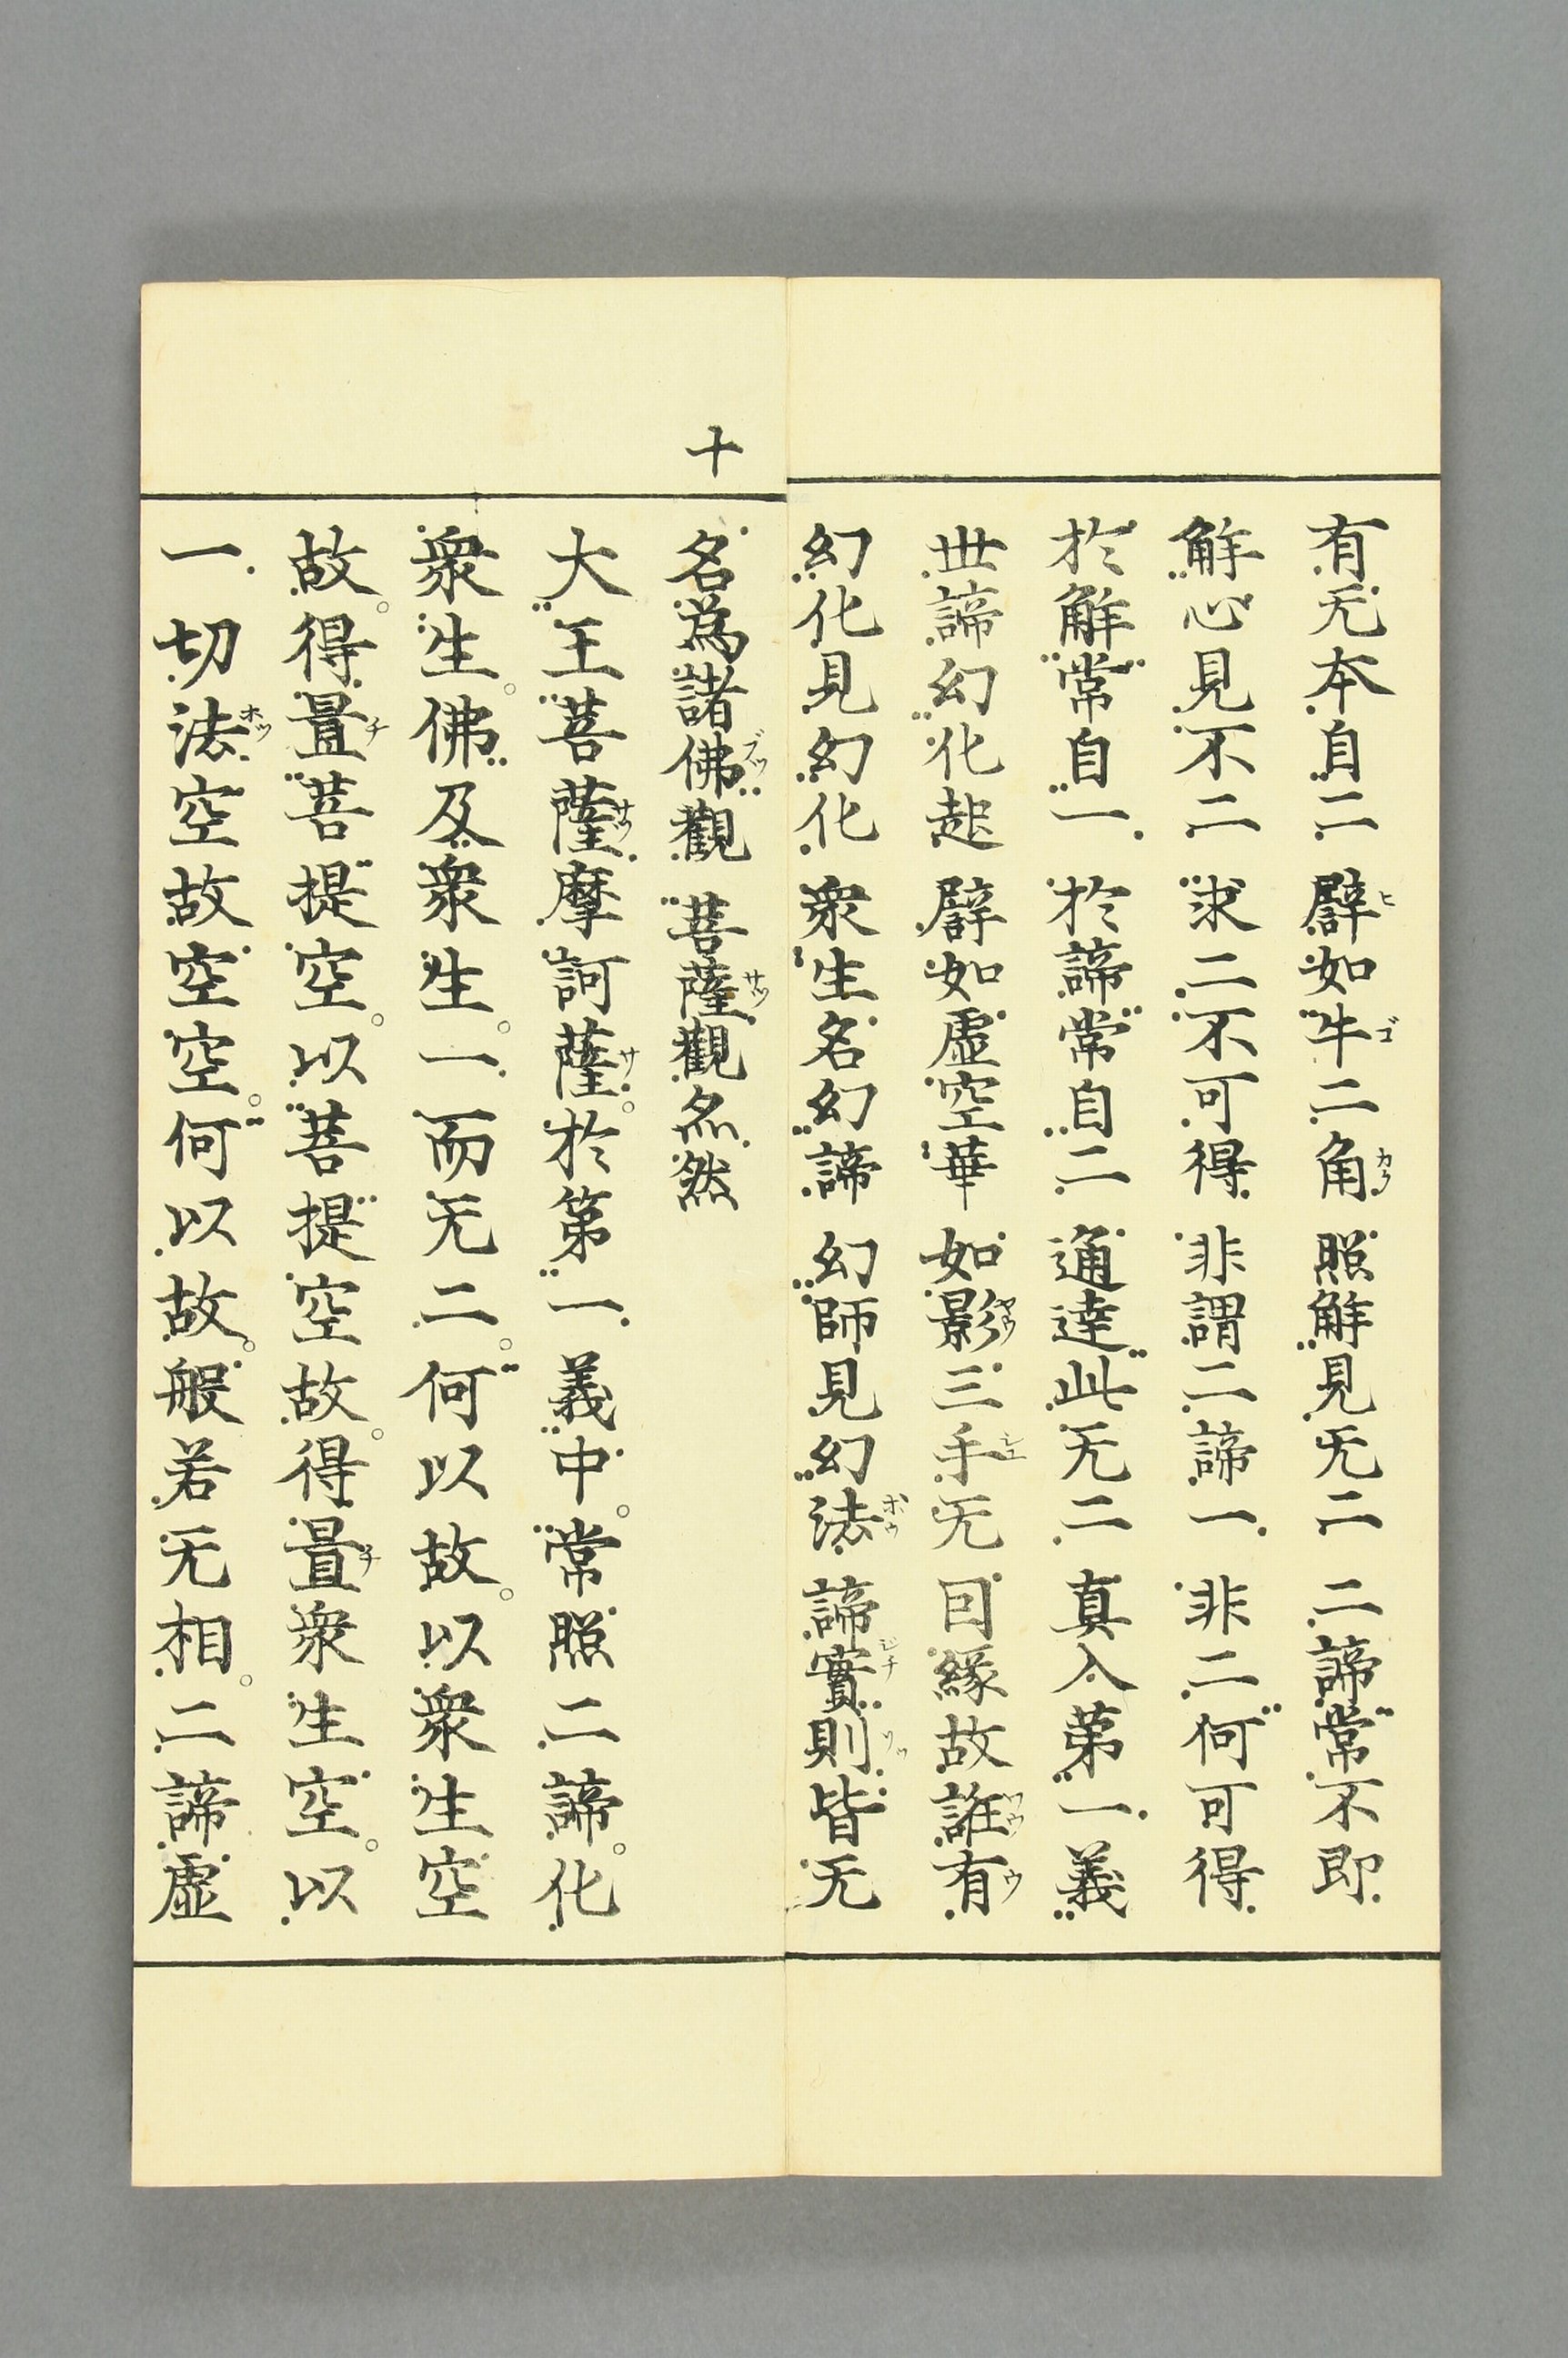 有无本自二 譬如牛二角 照解見无二 二諦常不即
解心見不二 求二不可得 非謂二諦一 非二何可得
於解常自一 於諦常自二 通達此无二 真入第一義
世諦幻化起 譬如虛空華 如影三手无 因緣故誰有
幻化見幻化 衆生名幻諦 幻師見幻法 諦實則皆无
十
名為諸佛觀 菩薩觀亦然
大王菩薩摩訶薩。於第一義中。常照二諦。化
衆生。佛及衆生。一而无二。何以故。以衆生空
故。得置菩提空。以菩提空故。得置衆生空。以
一切法空故空空。何以故。般若无相。二諦虛